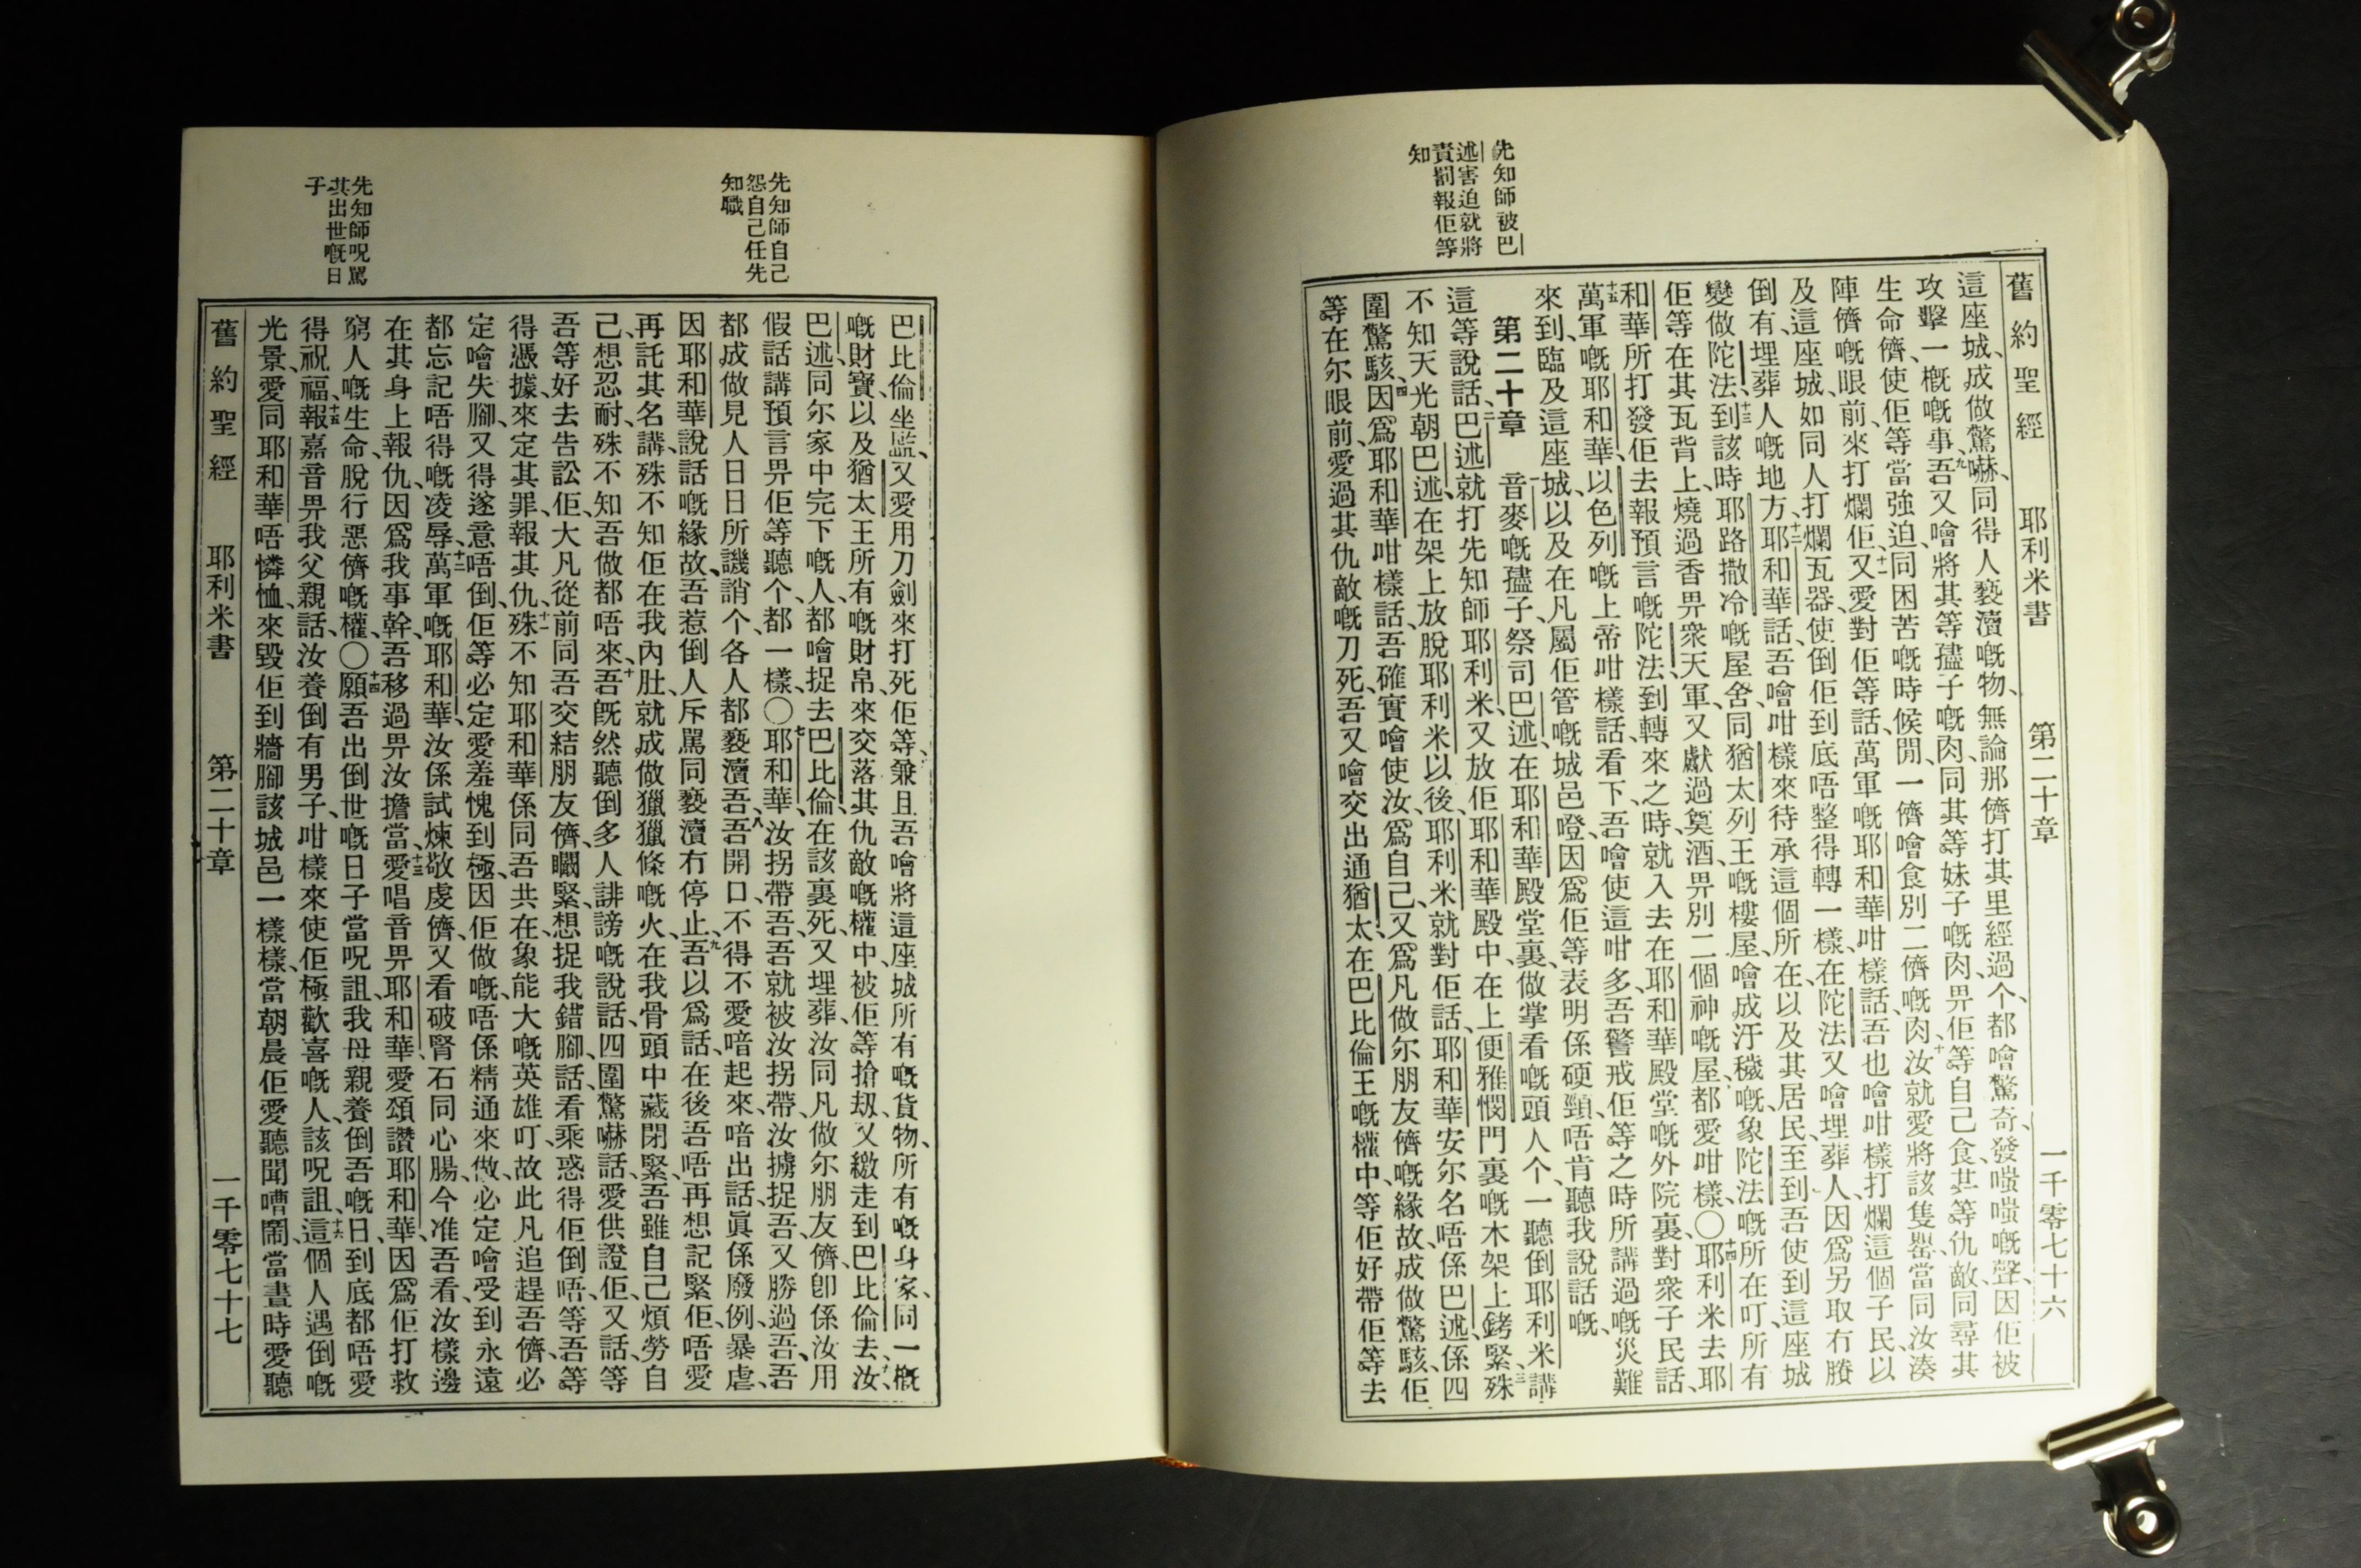 舊約聖經 耶利米書 第二十章 一千零七十六
先知師被巴
述害迫就將
責罰報佢等
知
這座城、成做驚嚇、同得人褻瀆嘅物、無論那儕打其里經過个、都噲驚奇、發嗤嗤嘅聲、因佢被
攻擊一概嘅事、九吾又噲將其等孻子嘅肉、同其等妹子嘅肉、畀佢等自己食、其等仇敵、同尋其
生命儕、使佢等當強迫、同困苦嘅時候閒、一儕噲食別二儕嘅肉、十汝就愛將該隻罌、當同汝湊
陣儕嘅眼前、來打爛佢、十一又愛對佢等話、萬軍嘅耶和華咁樣話、吾也噲咁樣打爛這個子民、以
及這座城、如同人打爛瓦器、使倒佢到底唔整得轉一樣、在陀法又噲埋葬人、因爲另取冇賸
倒有、埋葬人嘅地方、十二耶和華話、吾噲咁樣來待承這個所在、以及其居民、至到吾使到這座城
變做陀法、十三到該時耶路撒冷嘅屋舍、同猶太列王嘅樓屋、噲成汙穢嘅象陀法嘅所在叮、所有
佢等在其瓦背上、燒過香畀衆天軍、又獻過奠酒、畀別二個神嘅屋、都愛咁樣、○十四耶利米去耶
和華所打發佢去報預言嘅陀法、到轉來之時、就入去在耶和華殿堂嘅外院裏、對衆子民話、
十五萬軍嘅耶和華、以色列嘅上帝咁樣話、看下、吾噲使這咁多、吾警戒佢等之時所講過嘅災難
來到、臨及這座城、以及在凡屬佢管嘅城邑噔、因爲佢等表明係硬頸、唔肯聽我說話嘅、
第二十章 一音麥嘅孻子、祭司巴述、在耶和華殿堂裏、做掌看嘅頭人个、一聽倒耶利米講
這等說話、二巴述就打先知師耶利米、又放佢耶和華殿中、在上便雅憫門裏嘅木架上銬緊、三殊
不知天光朝巴述、在架上放脫耶利米以後、耶利米就對佢話、耶和華安尔名唔係巴述、係四
圍驚駭、四因爲耶和華咁樣話、吾確實噲使汝、爲自己、又爲凡做尔朋友儕嘅緣故、成做驚駭、佢
等在尔眼前、愛過其仇敵嘅刀死、吾又噲交出通猶太、在巴比倫王嘅權中、等佢好帶佢等去
先知師自己
怨自己任先
知職
先知師呪駡
其出世嘅日
子
巴比倫坐監、又愛用刀劍來打死佢等、五兼且吾噲將這座城所有嘅貨物、所有嘅身家、同一概
嘅財寶、以及猶太王所有嘅財帛、來交落其仇敵嘅權中、被佢等搶刼、又繳走到巴比倫去、六汝
巴述同尔家中完下嘅人、都噲捉去巴比倫、在該裏死、又埋葬、汝同凡做尔朋友儕、卽係汝用
假話講預言畀佢等聽个、都一樣、○七耶和華、汝拐帶吾、吾就被汝拐帶、汝擄捉吾、又勝過吾、吾
都成做見人日日所譏誚个、各人都褻瀆吾、八吾開口、不得不愛喑起來、喑出話、眞係廢例、暴虐、
因耶和華說話嘅緣故、吾惹倒人斥駡同褻瀆冇停止、九吾以爲話、在後吾唔再想記緊佢、唔愛
再託其名講、殊不知佢在我內肚、就成做獵獵條嘅火、在我骨頭中藏閉緊、吾雖自己煩勞自
己、想忍耐、殊不知吾做都唔來、十吾旣然聽倒多人誹謗嘅說話、四圍驚嚇、話、愛供證佢、又話、等
吾等好去告訟佢、大凡從前同吾交結朋友儕、矙緊、想捉我錯腳、話、看乘惑得佢倒唔、等吾等
得憑據、來定其罪、報其仇、十一殊不知耶和華係同吾共在、象能大嘅英雄叮、故此凡追趕吾儕、必
定噲失腳、又得遂意唔倒、佢等必定愛羞愧到極、因佢做嘅、唔係精通來做、必定噲受到永遠
都忘記唔得嘅凌辱、十二萬軍嘅耶和華、汝係試煉敬虔儕、又看破腎石同心腸、今准吾看、汝樣邊
在其身上報仇、因爲我事幹、吾移過畀汝擔當、十三愛唱音畀耶和華、愛頌讚耶和華、因爲佢打救
窮人嘅生命、脫行惡儕嘅權、○十四願吾出倒世嘅日子當呪詛、我母親養倒吾嘅日、到底都唔愛
得祝福、十五報嘉音畀我父親話、汝養倒有男子、咁樣來使佢極歡喜嘅人、該呪詛、十六這個人遇倒嘅
光景、愛同耶和華唔憐恤、來毀佢到牆腳該城邑一樣樣、當朝晨佢愛聽聞嘈鬧、當晝時愛聽
舊約聖經 耶利米書 第二十章 一千零七十七